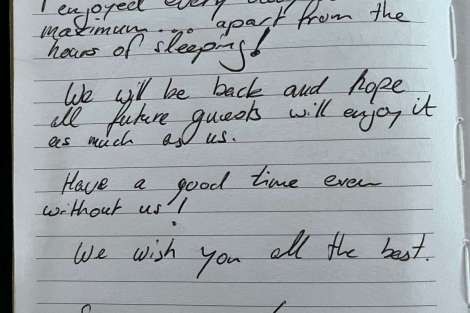 I enjoyed every
maximum... apart from the
hours of sleeping!
We will be back and hope
all future guests will enjoy it
as much as us.
Have a good time even
without us!
We wish you all the best.